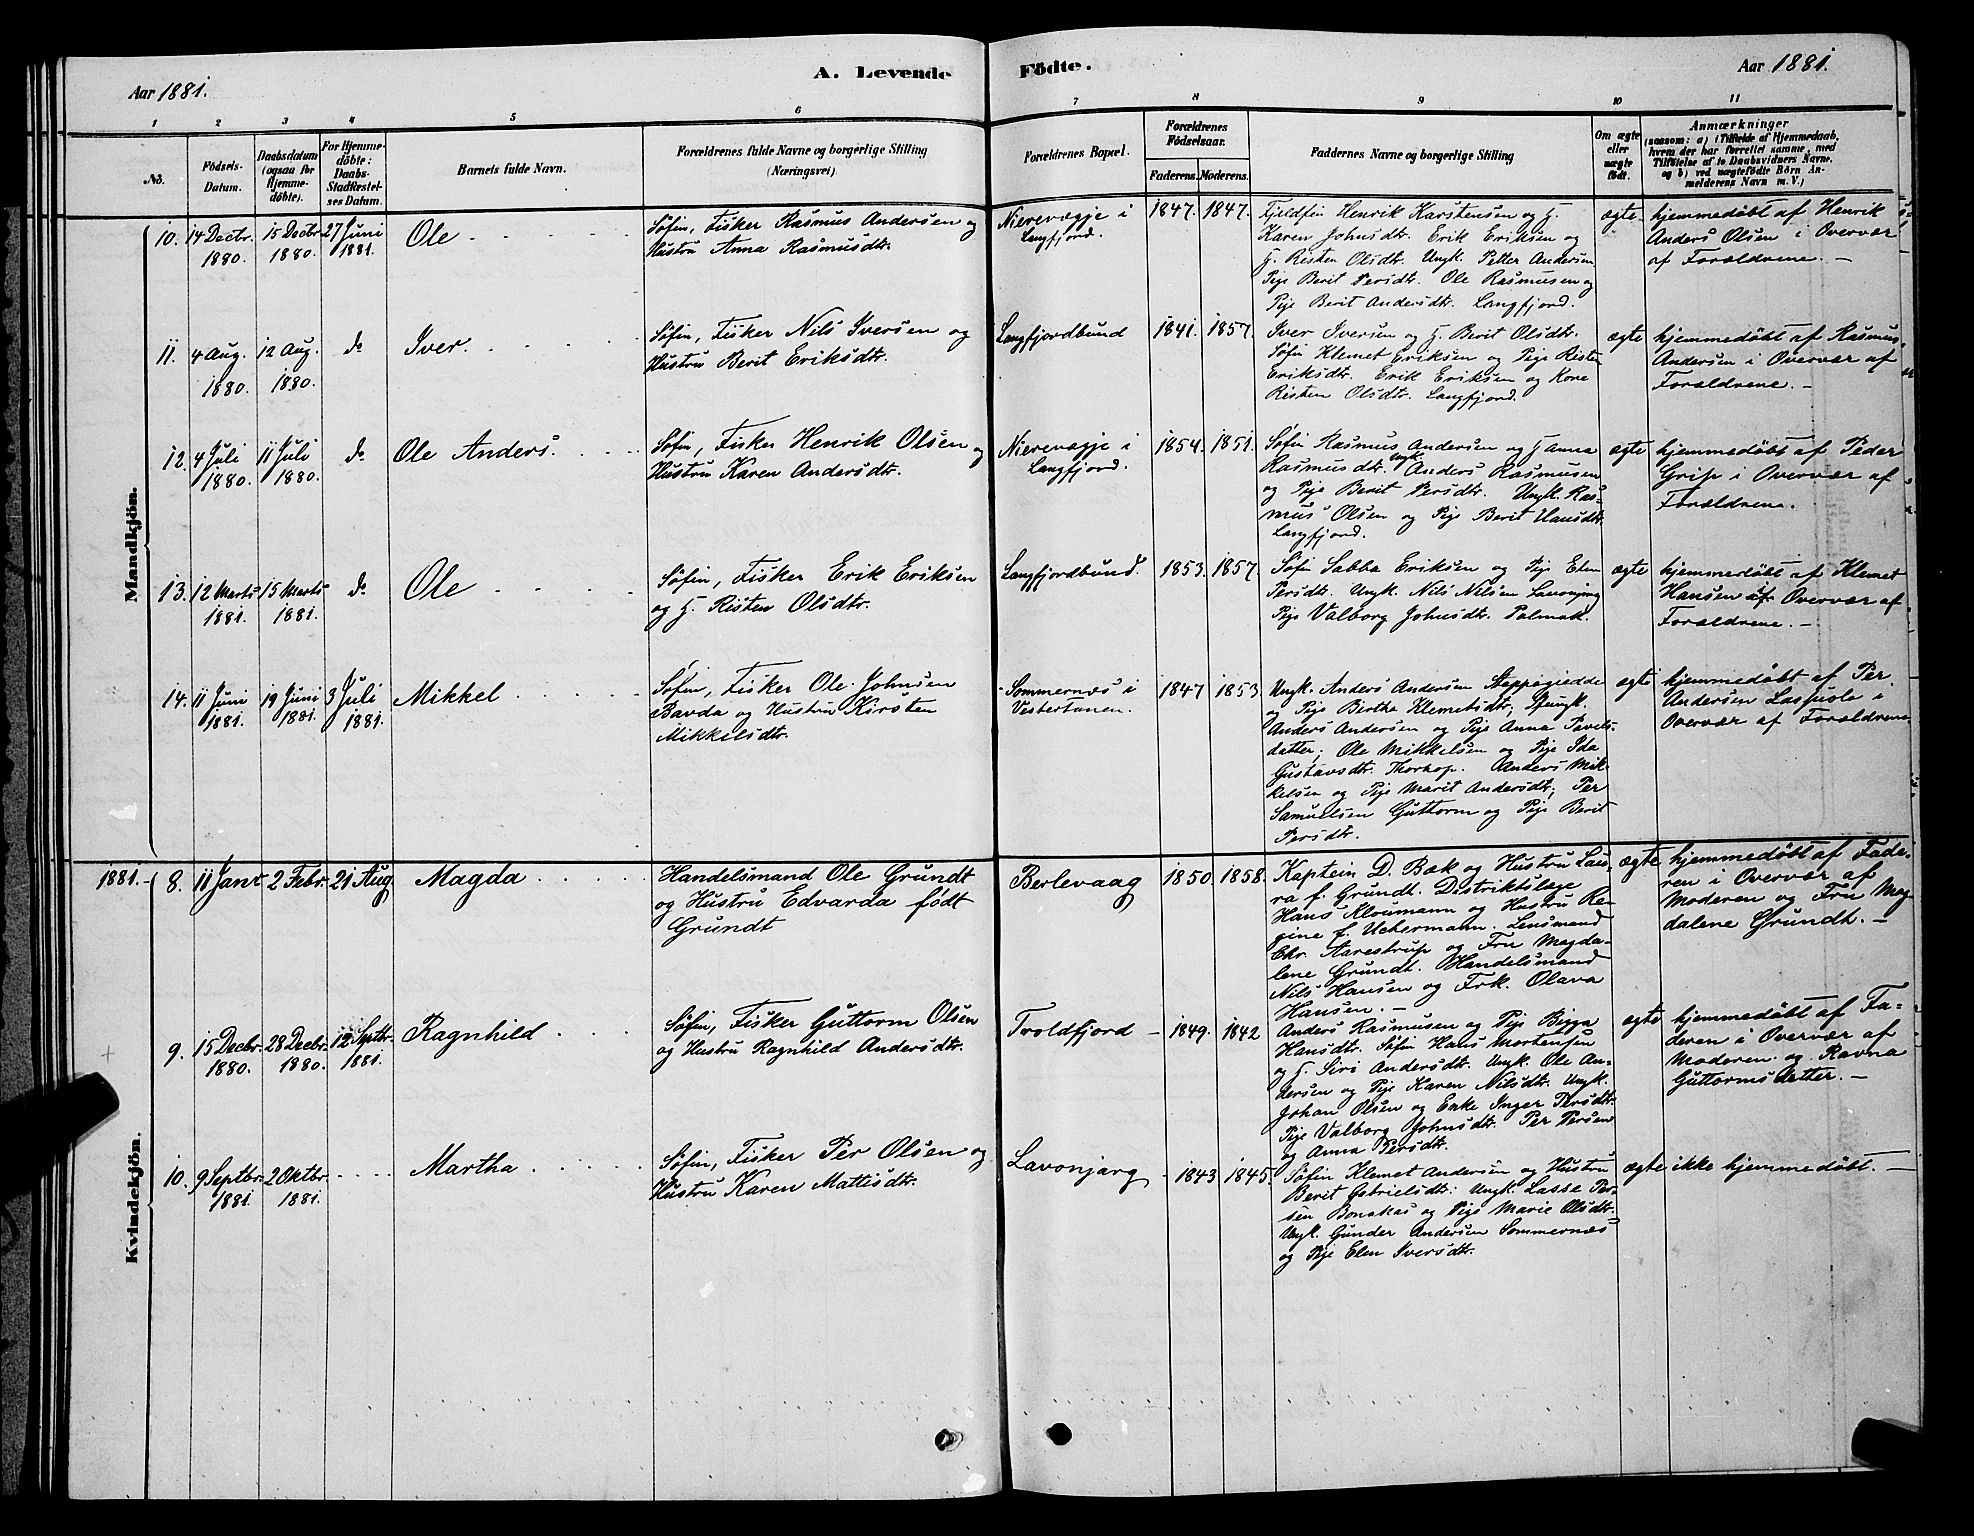 A. Levende Födte.
Aar 1881.
Aar 1881.
1 2 3 4 5 6 7 8 9 10 11
No.
Födsels-
Datum.
Daabsdatum
(ogsaa for
Hjemme-
döbte).
For Hjemme-
döbte:
Daabs-
Stadfæstel-
ses Datum.
Barnets fulde Navn.
Forældrenes fulde Navne og borgerlige Stilling
(Næringsvei).
Forældrenes Bopæl.
Forældrenes
Födselsaar.
Faderens. Moderens.
Faddernes Navne og borgerlige Stilling
Om ægte
eller
uægte
födt.
Anmærkninger
(saasom: a) i Tilfælde af Hjemmedaab,
hvem der har forrettet samme, med
Tilföielse af to Daabsvidners Navne,
og b) ved uægtefödte Börn An-
melderens Navn m. V.)
Mandkjön.
10. 14 Decbr. 1880. 15 Decbr. 1880. 27 Juni 1881. Ole
Søfin, Fisker Rasmus Andersen og
Hustru Anna Rasmusdtr.
Nierevægje i
Langfjord.
1847. 1847.
Fjeldfin Henrik Karstensen og H.
Karen Johnsdtr. Erik Eriksen og
H. Risten Olsdtr. Ungk. Petter Andersen
Pige Berit Persdtr. Ole Rasmussen og
Pige Berit Andersdtr. Langfjord.
ægte
hjemmedøbt af Henrik
Anders Olsen i Overvær
af Forældrene. —
11. 4 Aug. 1880. 12 Aug. 1880. do Iver.
Søfin, Fisker Nils Iversen og
Hustru Berit Eriksdtr.
Langfjordbund
1841. 1857.
Iver Iversen og H. Berit Olsdtr.
Søfin Klemet Eriksen og Pige Risten
Eriksdtr. Erik Eriksen og Kone
Risten Olsdtr. Langfjord.
ægte
hjemmedøbt af Rasmus
Andersen i Overvær af
Forældrene. —
12. 4 Juli 1880. 11 Juli 1880. do Ole Anders.
Søfin, Fisker Henrik Olsen og
Hustru Karen Andersdtr.
Nierevægje i
Langfjord.
1854. 1851.
Søfin Rasmus Andersen og H Anna
Rasmusdtr. Ungk. Anders Rasmusen
og Pige Berit Persdtr. Ungk. Ras-
mus Olsen og Pige Berit Hansdtr.
Langfjord.
ægte
hjemmedøbt af Peder
Grip i Overvær af
Forældrene.
13. 12 Marts 1881. 15 Marts 1881. do Ole
Søfin, Fisker Erik Eriksen
og H. Risten Olsdtr.
Langfjordbund.
1853. 1857.
Søfin Sabba Eriksen og Pige Elen
Persdtr. Ungk. Nils Nilsen Lavonjarg
Pige Valborg Johnsdtr. Polmak.
ægte
hjemmedøbt af Klemet
Hansen i Overvær af
Forældrene. —
14. 11 Juni 1881. 19 Juni 1881. 3 Juli 1881. Mikkel
Søfin, Fisker Ole Johnsen
Bavda og Hustru Kirsten
Mikkelsdtr.
Sommernæs i
Vestertanen.
1847 1853.
Ungk. Anders Andersen Steppogiedde
og Pige Birthe Klemetsdtr;
Anders Andersen og Pige Anna Pavels-
datter; Ole Mikkelsen og Pige Ida
Gustavsdtr. Thorkop. Anders Mik-
kelsen og Pige Marit Andersdtr; Per
Samuelsen Guttorm og Pige Berit
Persdtr.
ægte
hjemmedøbt af Per
Andersen i
Overvær af Forældrene
Kvindekjön.
1881. — 8. 11 Janr 2 Febr. 21 Aug. Magda
Handelsmand Ole Grundt
og Hustru Edvarda født
Grundt
Berlevaag
1850. 1858.
Kaptein D. Bæk og Hustru Lau-
ra f. Grundt. Distriktslæge
Hans Kloumann og Hustru Re-
gine f. Uchermann. Lensmand
Chr. Aarestrup og Fru Magda-
lene Grundt. Handelsmand
Nils Hansen og Frk. Olava
Hansen. —
ægte
hjemmedøbt af Fade-
ren i Overvær af
Moderen og Fru Mag-
dalene Grundt. —
9. 15 Decbr. 1880. 28 Decbr. 1880. 12 Septbr. 1881. Ragnhild
Søfin, Fisker Guttorm Olsen
og Hustru Ragnhild Andersdtr.
Troldfjord —
1849. 1842
Anders Rasmusen og Pige Bigga
Hansdtr. Søfin Hans Mortensen
og H. Siri Andersdtr. Ungk. Ole An-
dersen og Pige Karen Nilsdtr. Ungk.
Johan Olsen og Enke Inger Persdtr.
Pige Valborg Johnsdtr. Per Persen
og Anna Persdtr.
ægte
hjemmedøbt af Fa-
deren i Overvær af
Moderen og Ravna
Guttormsdatter. —
10. 9 Septbr. 1881. 2 Oktbr. 1881. Martha
Søfin, Fisker Per Olsen og
Hustru Karen Mattisdtr.
Lavonjarg —
1843 1845.
Søfin Klemet Andersen og Hustru
Berit Gabrielsdtr: Ungk. Lasse Per-
sen Bonakas og Pige Marie Olsdtr.
Ungk. Gunder Andersen Sommernæs
og Pige Elen Iversdtr.
ægte
ikke hjemmedøbt. —